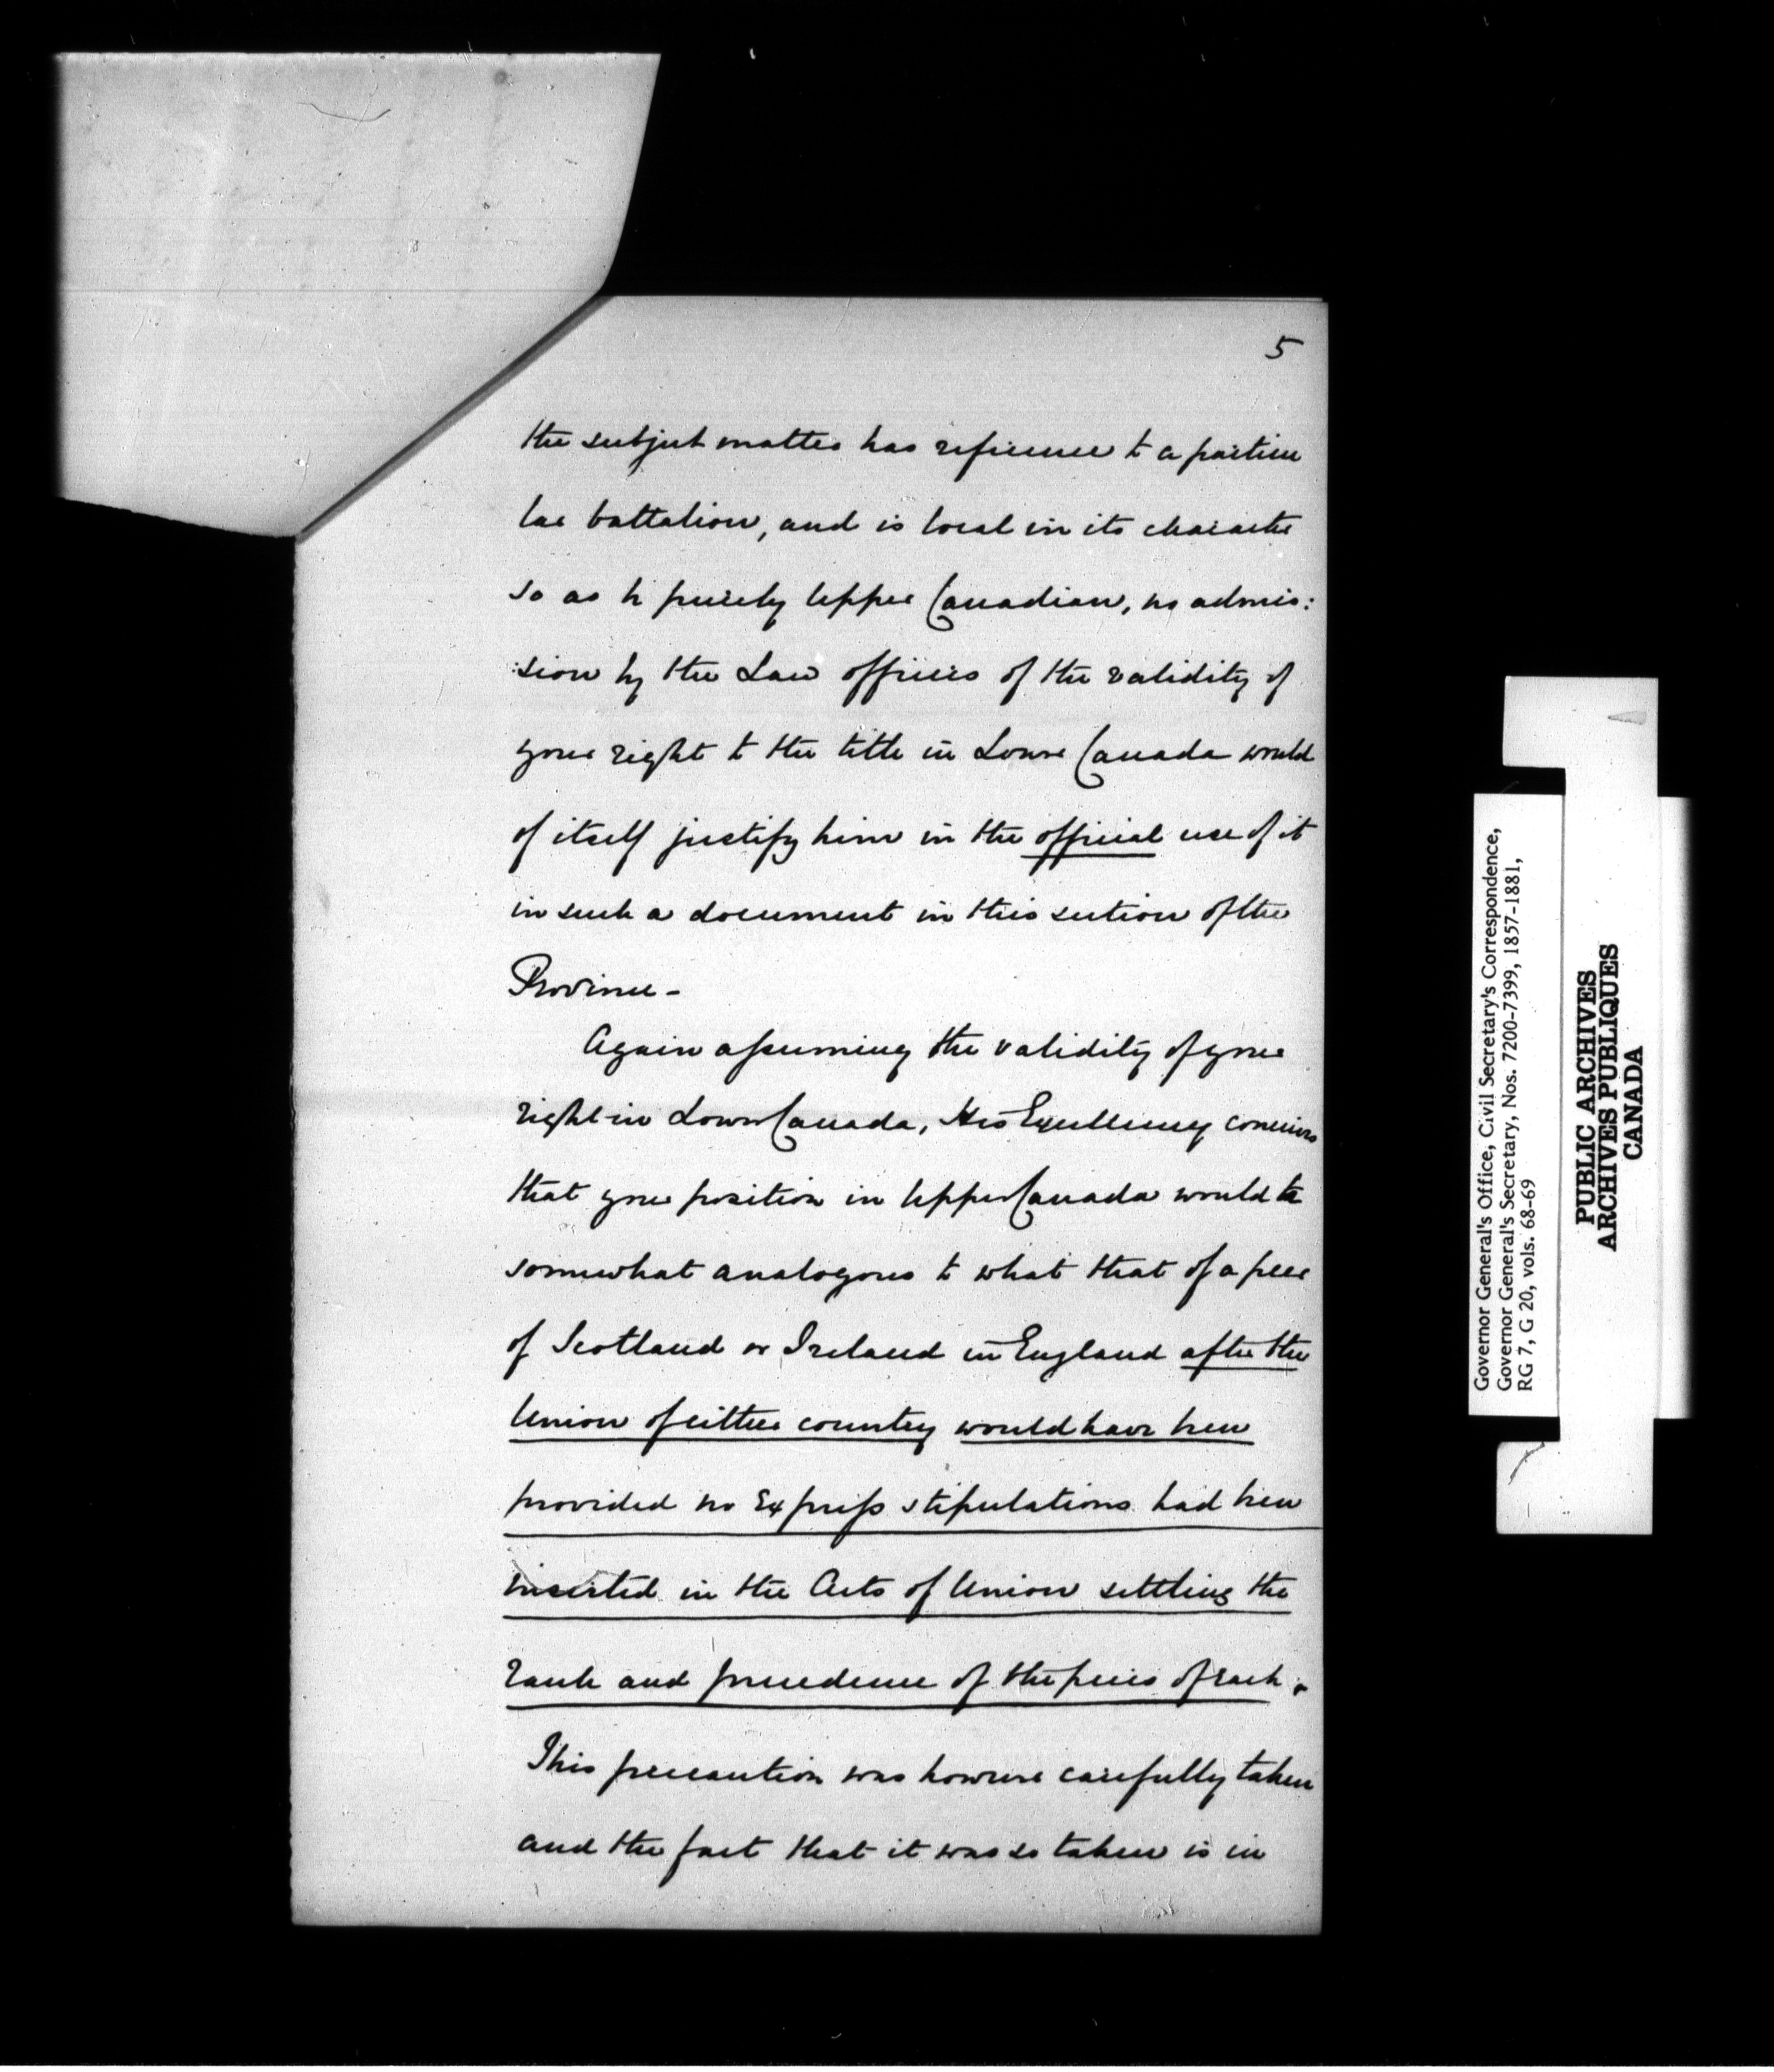 5
the subject matter has reference to a particu
lar battalion, and is local in its character
so as to be purely Upper Canadian, no admis:
:sion by the Law officers of the validity of
your right to the title in Lower Canada would
of itself justify him in the official use of it
in such a document in this section of the
Province -
Again assuming the validity of your
right in Lower Canada, His Excellency conceives
that your position in Upper Canada would be
somewhat analogous to what that of a peer
of Scotland or Ireland in England after the
Union of either country would have been
provided no express stipulations had been
inserted in the Acts of Union settling the
rank and precedence of the peers of each.
This precaution was however carefully taken
and the fact that it was so taken is in
Governor General's Office, Civil Secretary's Correspondence,
Governor General's Secretary, Nos. 7200-7399, 1857-1881,
RG 7, G 20, vols. 68-69
PUBLIC ARCHIVES
ARCHIVES PUBLIQUES
CANADA